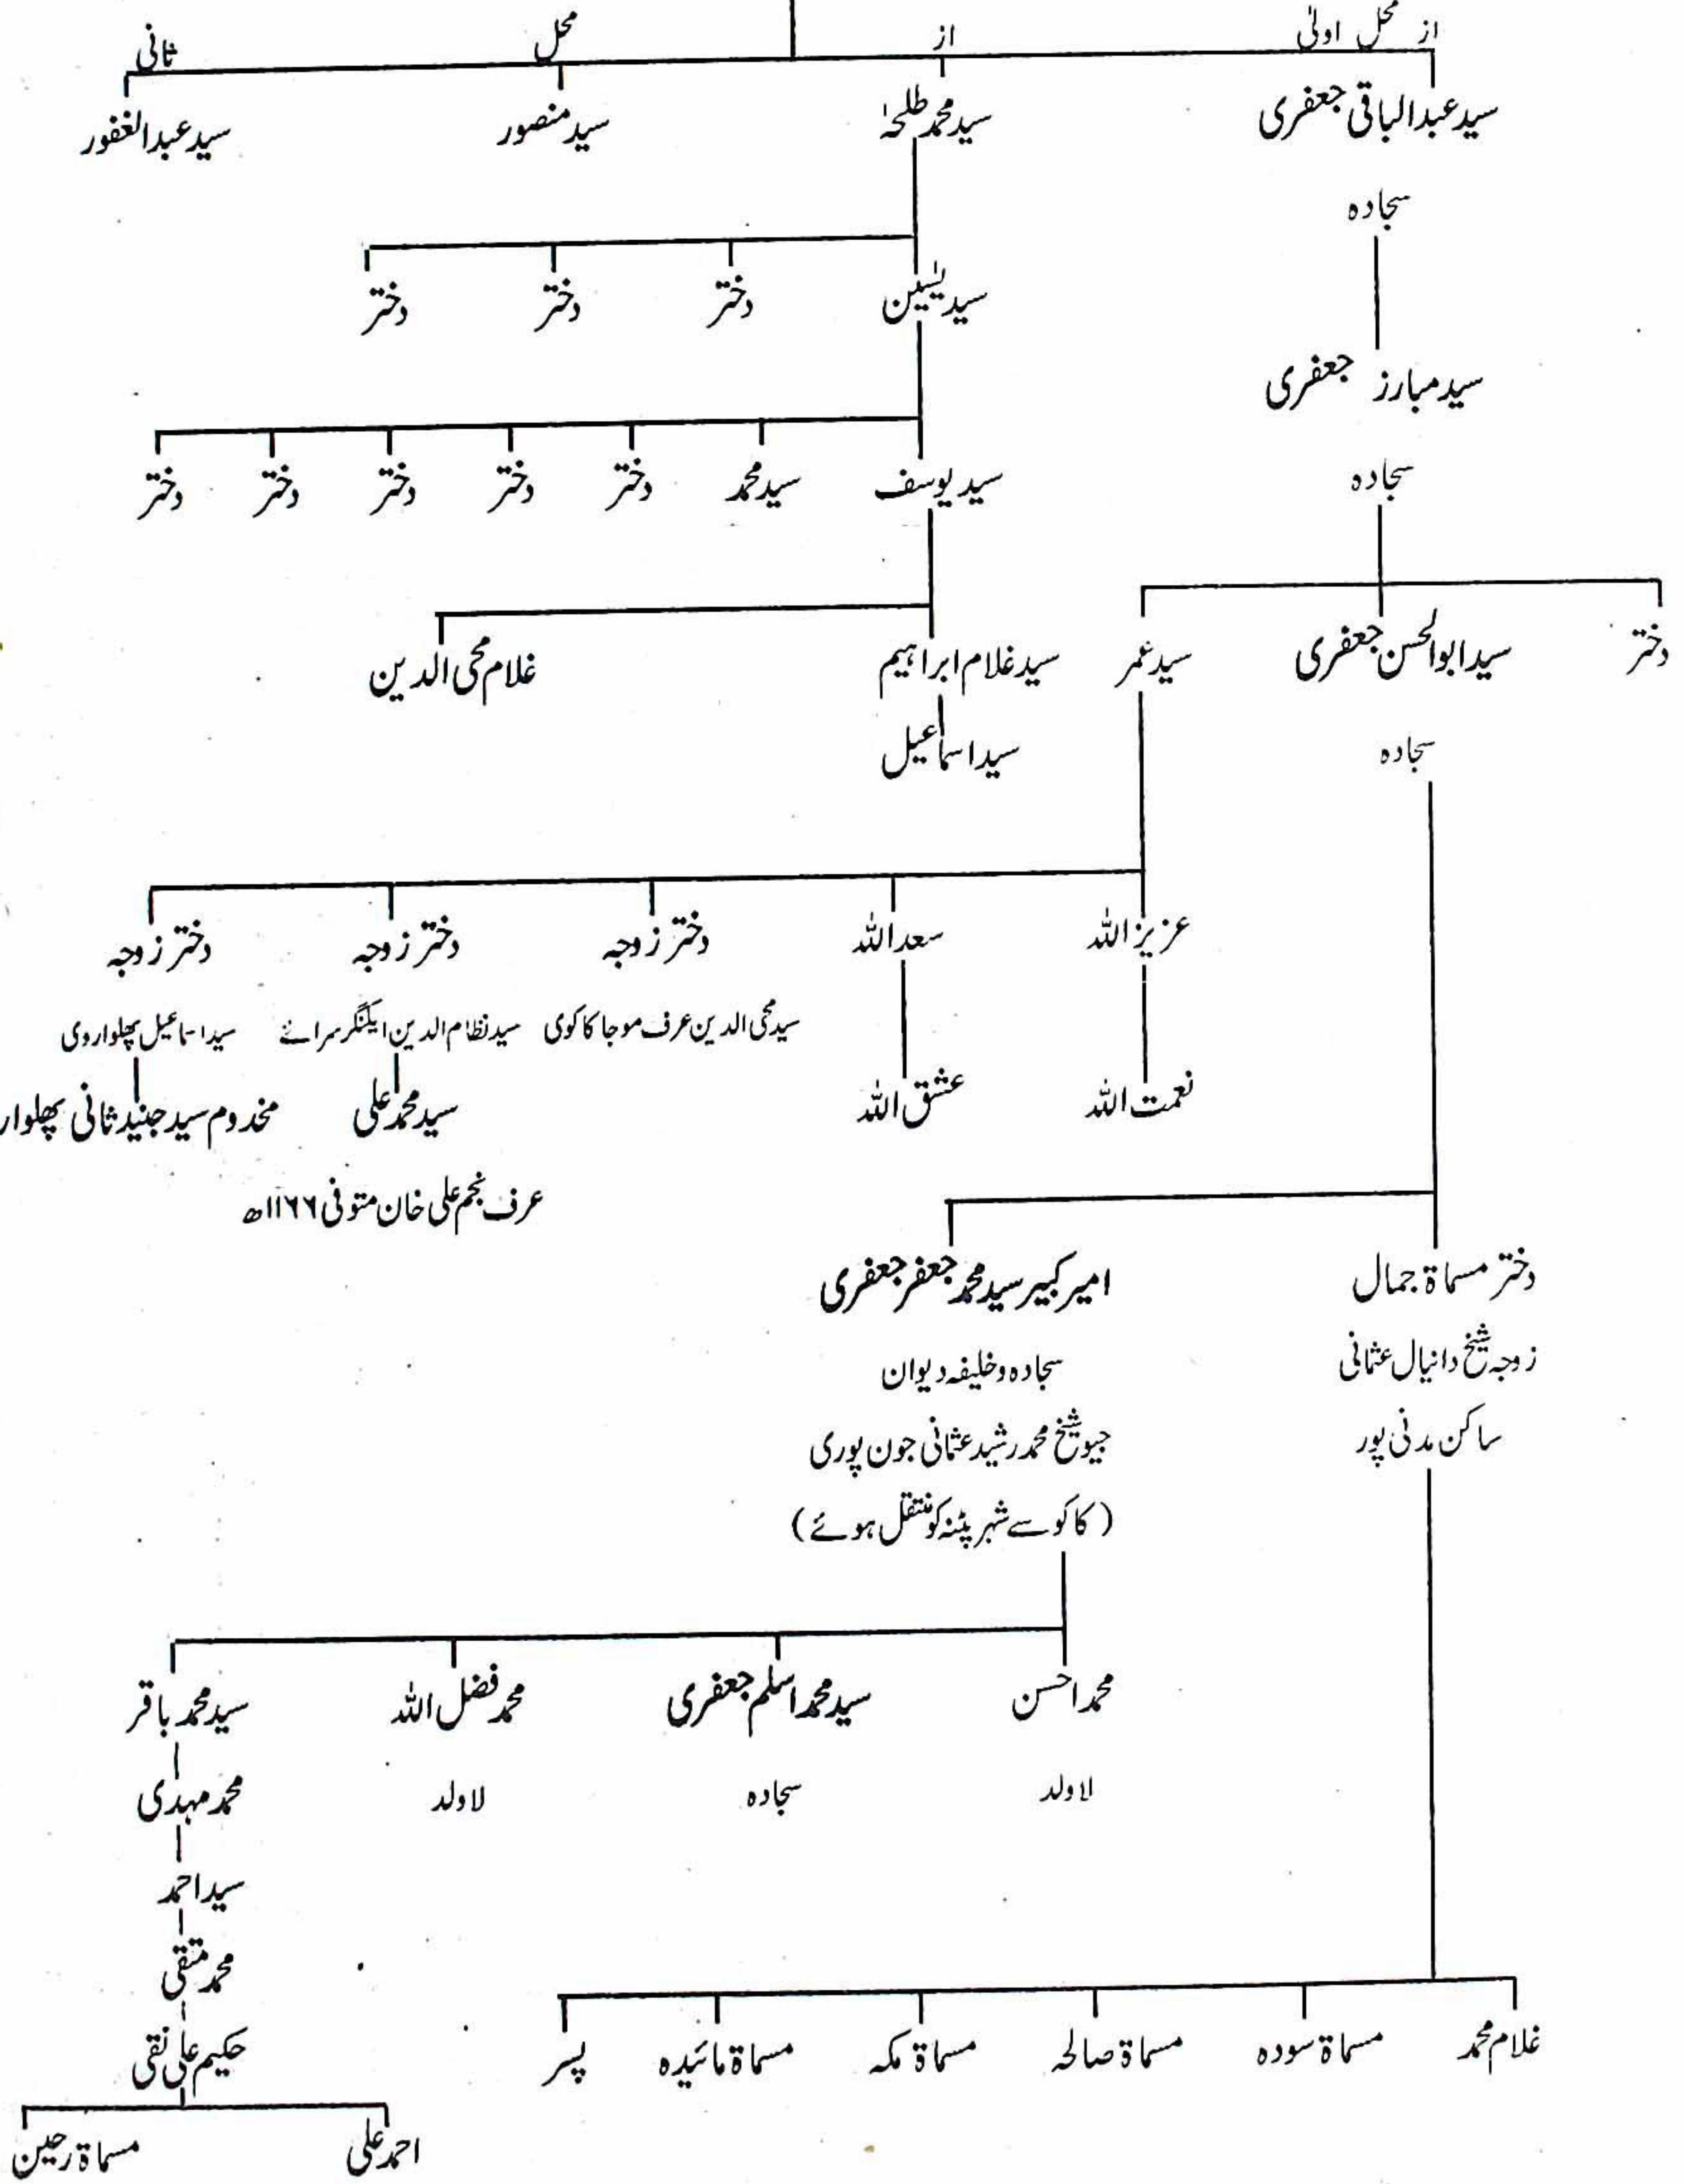 از محل اولیٰ
از
محل
ثانی
سید عبدالباقی جعفری
سید محمد طلحہٰ
سید منصور
سید عبدالغفور
سجادہ
سید یٰسین
دختر
دختر
دختر
سید مبارز جعفری
سجادہ
سید یوسف
سید محمد
دختر
دختر
دختر
دختر
دختر
دختر
سید ابوالحسن جعفری
سید عمر
سید غلام ابراہیم
غلام محی الدین
سجادہ
سید اسماعیل
عزیز اللہ
سعد اللہ
دختر زوجہ
دختر زوجہ
دختر زوجہ
سید محی الدین عرف موجا کاکوی
سید نظام الدین ایکنگر سرائے
سید اسماعیل پھلواروی
نعمت اللہ
عشق اللہ
سید محمد علی
مخدوم سید جنید ثانی پھلوار
عرف نجم علی خان متوفی ۱۱۶۶ھ
دختر مسماۃ جمال
امیر کبیر سید محمد جعفر جعفری
زوجہ شیخ دانیال عثمانی
سجادہ و خلیفہ دیوان
ساکن مدنی پور
جیو شیخ محمد رشید عثمانی جون پوری
(کاکو سے شہر پٹنہ کو منتقل ہوئے)
محمد احسن
سید محمد اسلم جعفری
محمد فضل اللہ
سید محمد باقر
لاولد
سجادہ
لاولد
محمد مہدی
سید احمد
محمد متقی
حکیم علی نقی
غلام محمد
مسماۃ سودہ
مسماۃ صالحہ
مسماۃ مکہ
مسماۃ مائیدہ
پسر
احمد علی
مسماۃ